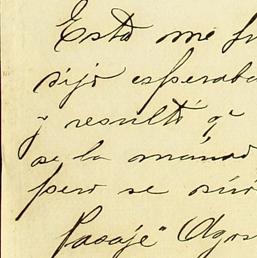 Esto me fu
dijo esperaba
y resultó q
se la manda
pero se
Pasaje" Agos